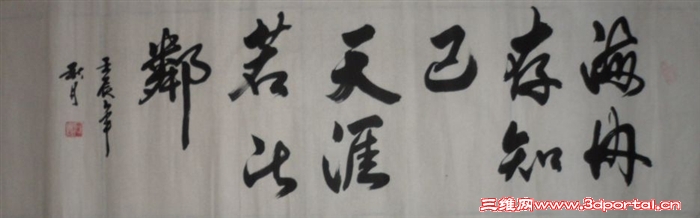 海内
存知
己
天涯
若比
鄰
壬辰年
秋月
三维网www.3dportal.cn